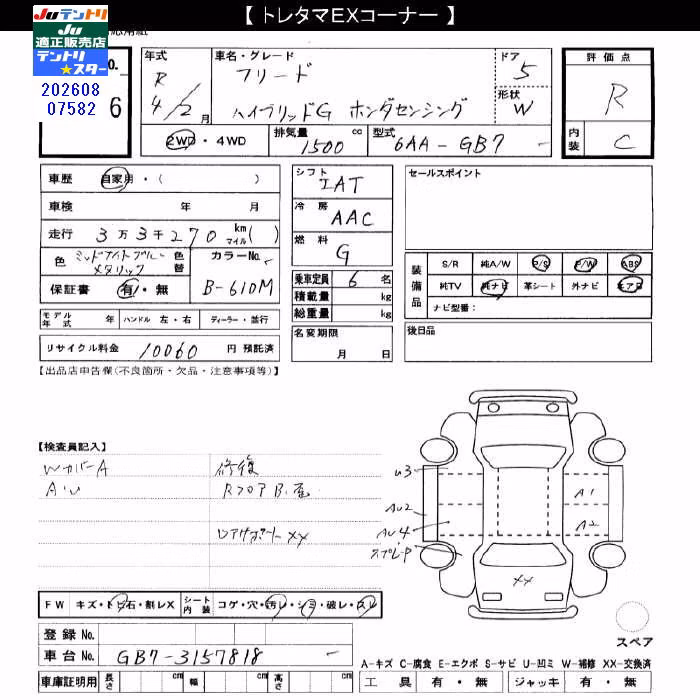 【 トレタマEXコーナー 】
Juテントリ
Ju
適正販売店
テントリ
★スター
202608
07582
No.
6
年式
R
4/2月
車名・グレード
フリード
ハイブリッドG ホンダセンシング
ドア
5
形状
W
評価点
R
内装
C
2WD・4WD
排気量 1500 cc
型式 6AA-GB7
車歴 自家用・( )
車検 年 月
走行 3万3千270 km マイル( )
色 ミッドナイトブルーメタリック 色替
カラーNo. B-610M
保証書 有・無
モデル年式 年 ハンドル 左・右 ディーラー・並行
リサイクル料金 10060 円 預託済
シフト IAT
冷房 AAC
燃料 G
乗車定員 6 名
積載量 kg
総重量 kg
名変期限
月 日
セールスポイント
装備品
S/R 純A/W P/S P/W ABS
純TV 純ナビ 革シート 外ナビ エアB
ナビ型番:
後日品
【出品店申告欄(不良箇所・欠品・注意事項等)】
【検査員記入】
WカバーA
AU
修復
RフロアB.歪
リアゲート XX
U3
AU2
AU4
A1
A2
XX
スペア
FW キズ・トビ石・割レX
シート内装 コゲ・穴・汚レ・シミ・破レ・スレ
登録 No.
車台 No. GB7-3157818
車庫証明用 長さ cm 幅 cm 高さ cm
A-キズ C-腐食 E-エクボ S-サビ U-凹ミ W-補修 XX-交換済
工具 有・無 ジャッキ 有・無